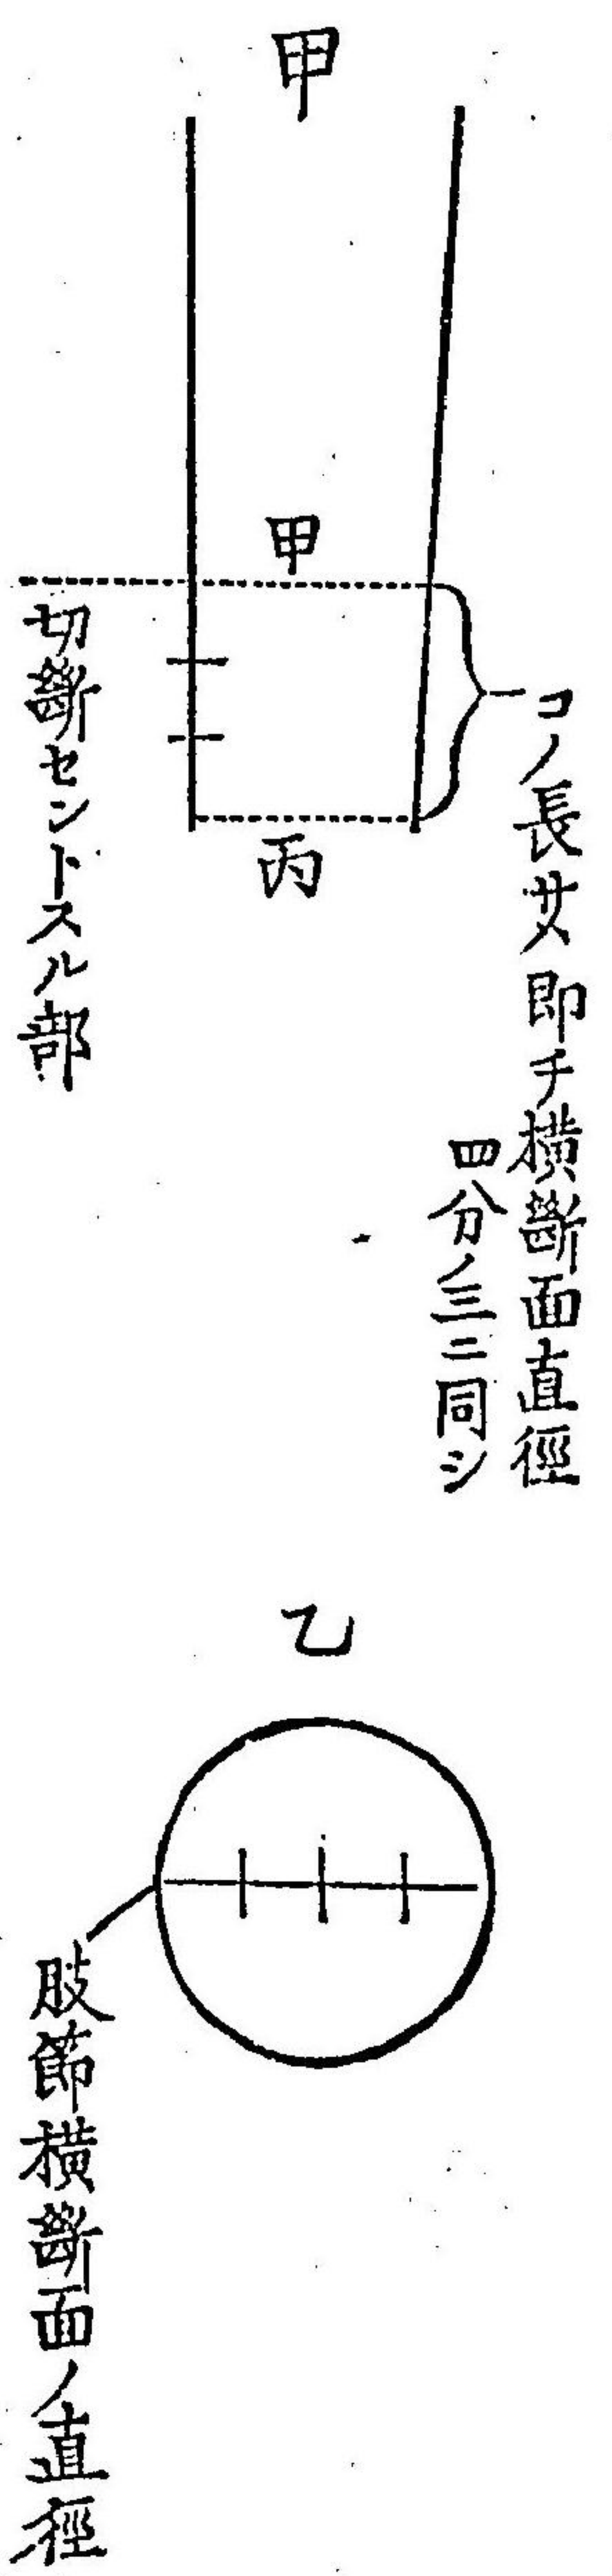 甲
甲
コノ長サハ即チ横斷面直徑
四分ノ三ニ同シ
丙
切斷セントスル部
乙
肢節横斷面ノ直徑